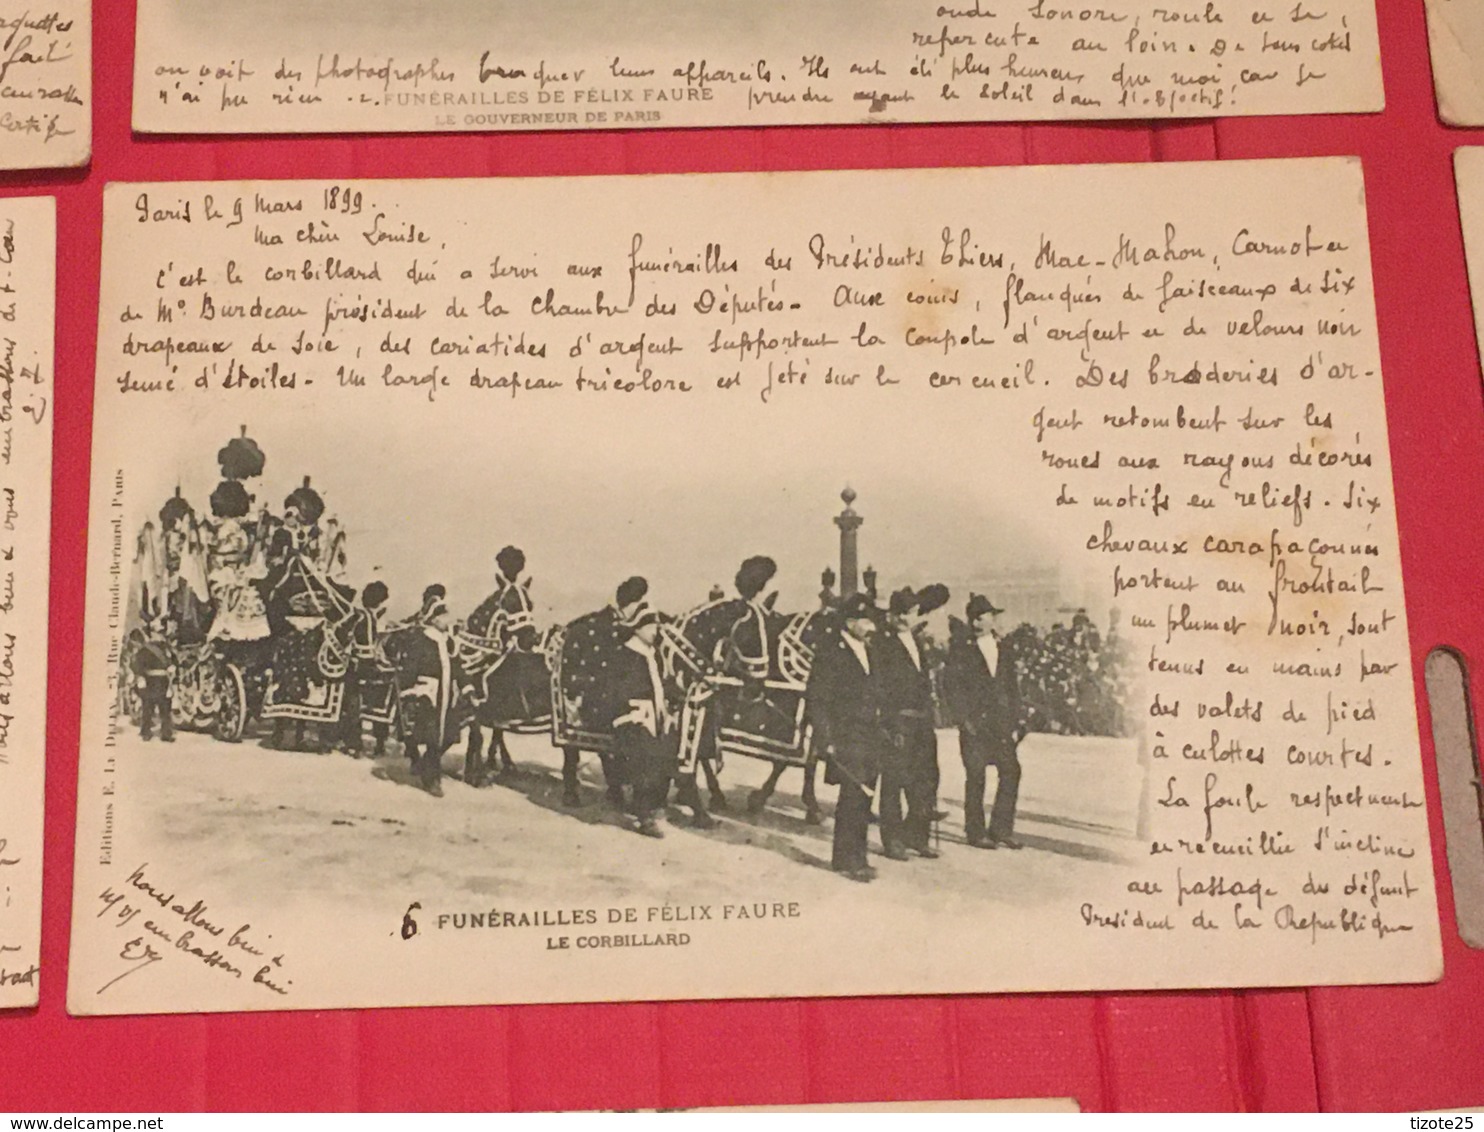 onde sonore, roule et se,
repercute au loin. De tous cotés
on voit des photographes braquer leurs appareils. Ils ont été plus heureux que moi car je
n'ai pu rien prendre ayant le soleil dans l'objectif!
FUNÉRAILLES DE FÉLIX FAURE
LE GOUVERNEUR DE PARIS
Paris le 9 Mars 1899.
Ma chère Louise,
C'est le corbillard qui a servi aux funérailles des Présidents Thiers, Mac-Mahon, Carnot et
de Mr Burdeau président de la Chambre des Députés. Aux coins, flanqués de faisceaux de six
drapeaux de soie, des cariatides d'argent supportent la coupole d'argent et de velours noir
semé d'étoiles. Un large drapeau tricolore est jeté sur le cercueil. Des broderies d'ar-
gent retombent sur les
roues aux rayons décorés
de motifs en reliefs. Six
chevaux carapaçonnés
portent au frontail
un plumet noir, sont
tenus en mains par
des valets de pied
à culottes courtes.
La foule respectueuse
et recueillie s'incline
au passage du défunt
President de la Republique
Editions E. Le Deley, 73, Rue Claude-Bernard, Paris
nous allons bien &
embrassons bien
6 FUNÉRAILLES DE FÉLIX FAURE
LE CORBILLARD
fait
tizote25